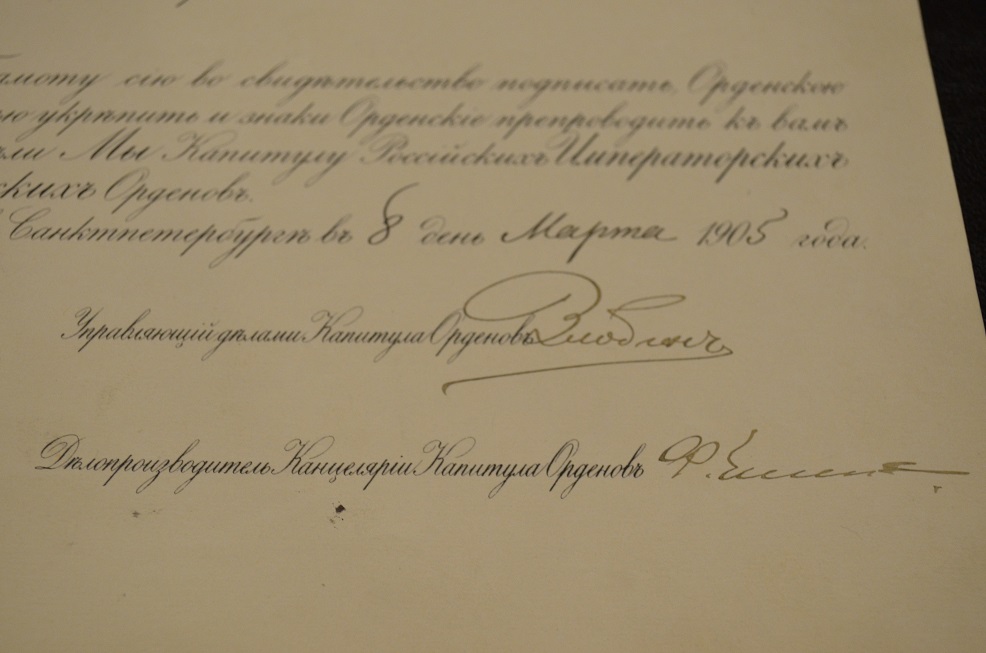 амоту сію во свидѣтельство подписать, Орденскою
ью укрѣпить и знаки Орденскіе препроводить къ вамъ
ѣли Мы Капитулу Россійскихъ Императорскихъ
скихъ Орденовъ.
Санктпетербургѣ въ 8 день Марта 1905 года.
Управляющій дѣлами Капитула Орденовъ
Дѣлопроизводитель Канцеляріи Капитула Орденовъ